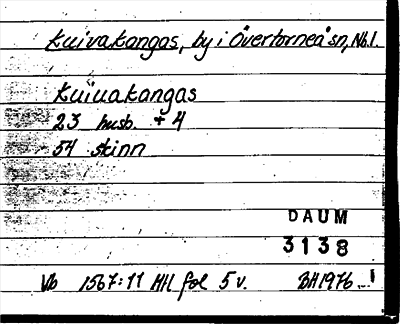 Kuivakangas, by i Övertorneå sn, Nb.l.
Kuiuakangas
23 husb. + 4
54 skinn
DAUM
3138
Vb 1567:11 Mtl fol 5 v. BH 1976